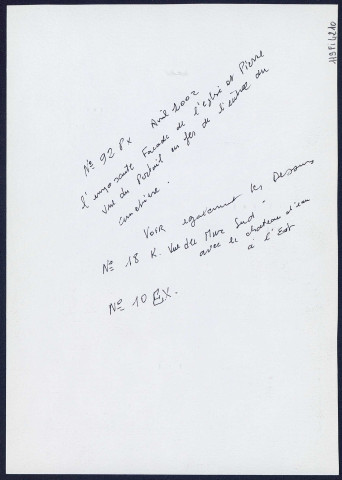 119Fi6210
N° 92 Px Avril 2002
l'imposante Facade de l'Eglise et Pierre
vue du Portail en fer de l'entrée du
cimetière.
Voir egalement les Dessins
N° 18 K. Vue du Mur Sud -
avec le chateau d'eau
à l'Est
N° 10 EX.